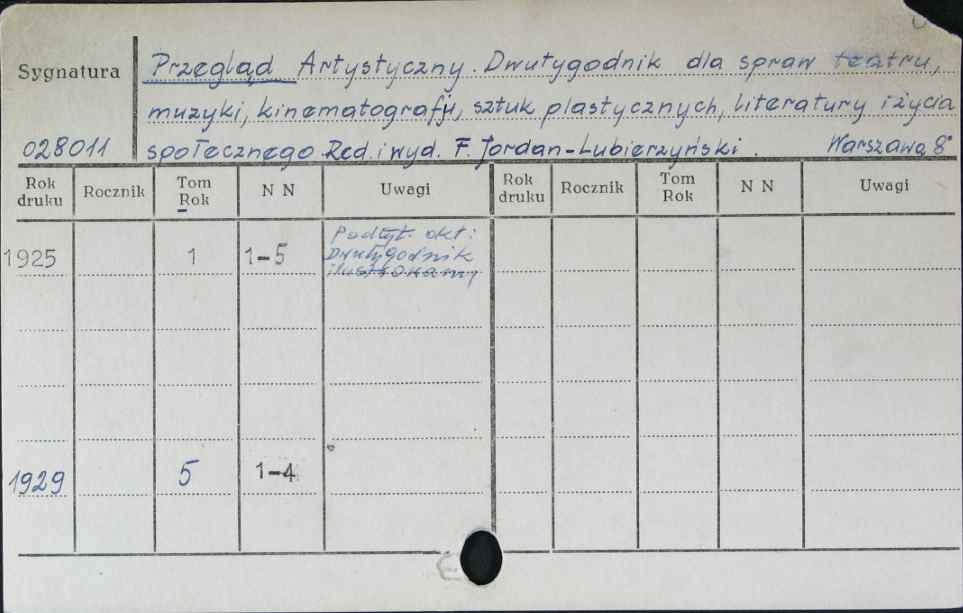 Sygnatura
Przegląd Artystyczny. Dwutygodnik dla spraw teatru,
muzyki, kinematografji, sztuk plastycznych, literatury i życia
028011 społecznego. Red. i wyd. F. Jordan-Lubierzyński. Warszawa 8°
Rok druku Rocznik Tom Rok N N Uwagi Rok druku Rocznik Tom Rok N N Uwagi
Podtyt. okł:
1925 1 1-5 Dwutygodnik
ilustrowany
1929 5 1-4